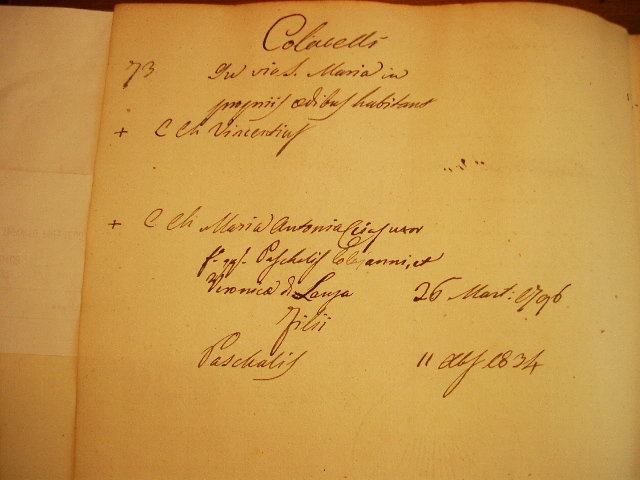 Colacelli
73 In via S. Maria in
propriis ædibus habitant
+ C Ch Vincentius
+ C Ch Maria Antonia ejus uxor
f. qq. Paschalis et
Veronica di Lanza 26 Mart. 1796
Filii
Paschalis 11 1834